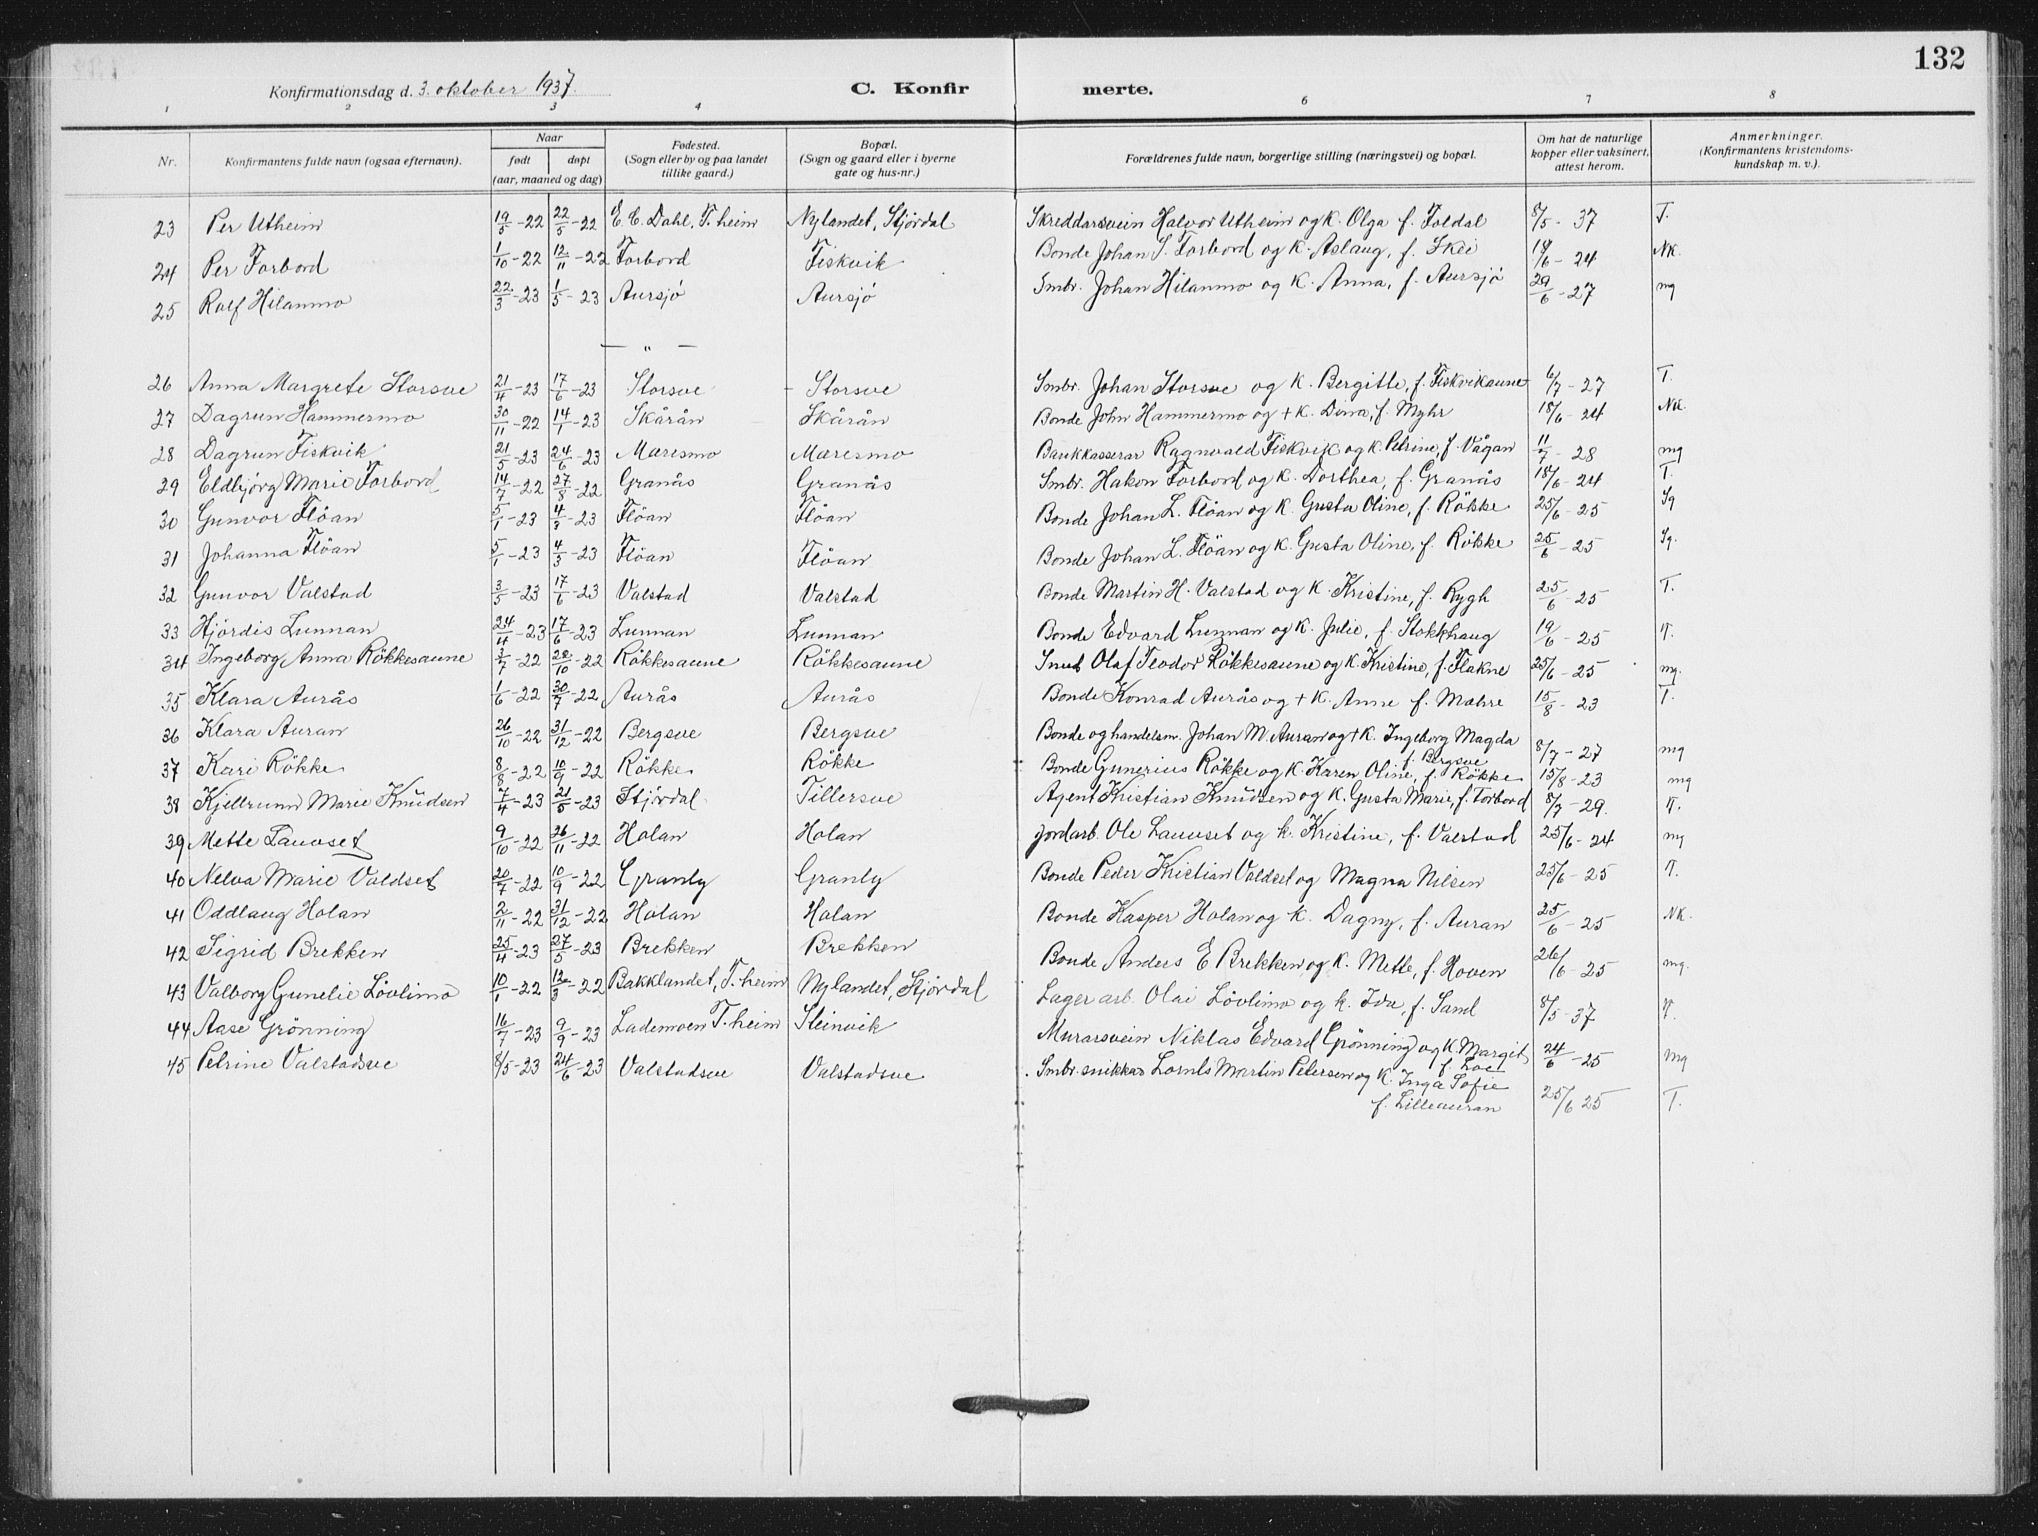 132
Konfirmationsdag d. 3. oktober 1937.
C. Konfirmerte.
1 2 3 4 6 7 8
Nr. Konfirmantens fulde navn (ogsaa efternavn). Naar født døpt (aar, maaned og dag) Fødested. (Sogn eller by og paa landet tillike gaard.) Bopæl. (Sogn og gaard eller i byerne gate og hus-nr.) Forældrenes fulde navn, borgerlige stilling (næringsvei) og bopæl. Om hat de naturlige kopper eller vaksinert, attest herom. Anmerkninger. (Konfirmantens kristendomskundskap m. v.).
23 Per Utheim 19/5-22 22/5-22 E. C. Dahl, T.heim Nylandet, Stjördal Skreddarsvein Halvor Utheim og k. Olga f. Foldal 8/5-37 T.
24 Per Forbord 1/10-22 12/11-22 Forbord Fiskvik Bonde Johan S. Forbord og k. Aslaug, f. Skei 18/6-24 NK.
25 Rolf Hilanmo 22/3-23 1/5-23 Aursjö Aursjö Smbr. Johan Hilanmo og k. Anna, f. Aursjö 29/6-27 mg
— " —
26 Anna Margrete Storsve 21/4-23 17/6-23 Storsve - Storsve Smbr. Johan Storsve og k. Bergitte, f. Fiskvikaune 6/7-27 T.
27 Dagrun Hammermo 30/11-22 14/1-23 Skårån Skårån Bonde John Hammermo og + k. Dina, f. Myhr 18/6-24 NK.
28 Dagrun Fiskvik 21/5-23 24/6-23 Mæresmo Mæresmo Bankkasserar Ragnvald Fiskvik og k. Petrine, f. Vågan 11/7-28 mg
29 Eldbjörg Marie Forbord 14/7-22 27/8-22 Granås Granås Smbr. Hakon Forbord og k. Dorthea, f. Granås 18/6-24 T.
30 Gunvor Flöan 5/1-23 4/3-23 Flöan Flöan Bonde Johan L. Flöan og k. Gusta Oline, f. Rökke 25/6-25 Sg
31 Johanna Flöan 5/1-23 4/3-23 Flöan Flöan Bonde Johan L. Flöan og k. Gusta Oline, f. Rökke 25/6-25 Sg.
32 Gunvor Valstad 3/5-23 17/6-23 Valstad Valstad Bonde Martin H. Valstad og k. Kristine, f. Rygh 25/6-25 T.
33 Hjördis Lunnan 24/4-23 17/6-23 Lunnan Lunnan Bonde Edvard Lunnan og k. Julie, f. Stokkhaug 19/6-25 T.
34 Ingeborg Anna Rökkesaune 3/7-22 28/10-22 Rökkesaune Rökkesaune Smed Olaf Teodor Rökkesaune og k. Kristine, f. Flakne 25/6-25 mg.
35 Klara Aurås 1/6-22 30/7-22 Aurås Aurås Bonde Konrad Aurås og + k. Anne f. Mæhre 15/8-23 T.
36 Klara Auran 26/10-22 31/12-22 Bergsve Bergsve Bonde og handelsm. Johan M. Auran og + k. Ingeborg Magda f. Bergsve 8/7-27 mg
37 Kari Rökke 8/8-22 10/9-22 Rökke Rökke Bonde Gunerius Rökke og k Karen Oline, f. Rökke 15/8-23 mg
38 Kjellrunn Marie Knudsen 7/4-23 21/5-23 Stjördal Tillersve Agent Kristian Knudsen og k. Gusta Marie, f. Forbord 8/7-29. T.
39 Mette Lauvset 9/10-22 26/11-22 Holan Holan Jordarb. Ole Lauvset og k. Kristine, f. Valstad 25/6-24 mg
40 Nelva Marie Valdset 20/7-22 10/9-22 Granly Granly Bonde Peder Kristian Valdset og Magna Nilsen 25/6-25 T.
41 Oddlaug Holan 2/11-22 31/12-22 Holan Holan Bonde Kasper Holan og k. Dagny, f. Auran 25/6-25 NK.
42 Sigrid Brekken 25/4-23 27/5-23 Brekken Brekken Bonde Anders E Brekken og k. Mette, f. Hoven 26/6-25 mg.
43 Valborg Gunelie Lövlimo 10/1-22 12/3-22 Bakklandet, T.heim Nylandet, Stjördal Lagerarb. Olai Lövlimo og k. Ida, f. Sand 8/5-37 T.
44 Aase Grönning 16/7-23 9/9-23 Lademoen T.heim Steinvik Murarsvein Niklas Edvard Grönning og k. Margit f. Loe 24/6-25 mg
45 Petrine Valstadsve 8/5-23 24/6-23 Valstadsve Valstadsve Smbr. snikkar Martin Petersen og k. Inga Sofie
f. Lilleauran 25/6 25 T.